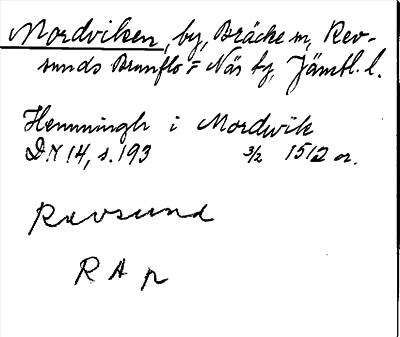 Mordviken, by, Bräcke sn, Rev-
sunds Brunflo = Näs tg, Jämtl. l.
Hemmingh i Mordwik
DN 14, s. 193 3/2 1512 or.
Revsund
R A p